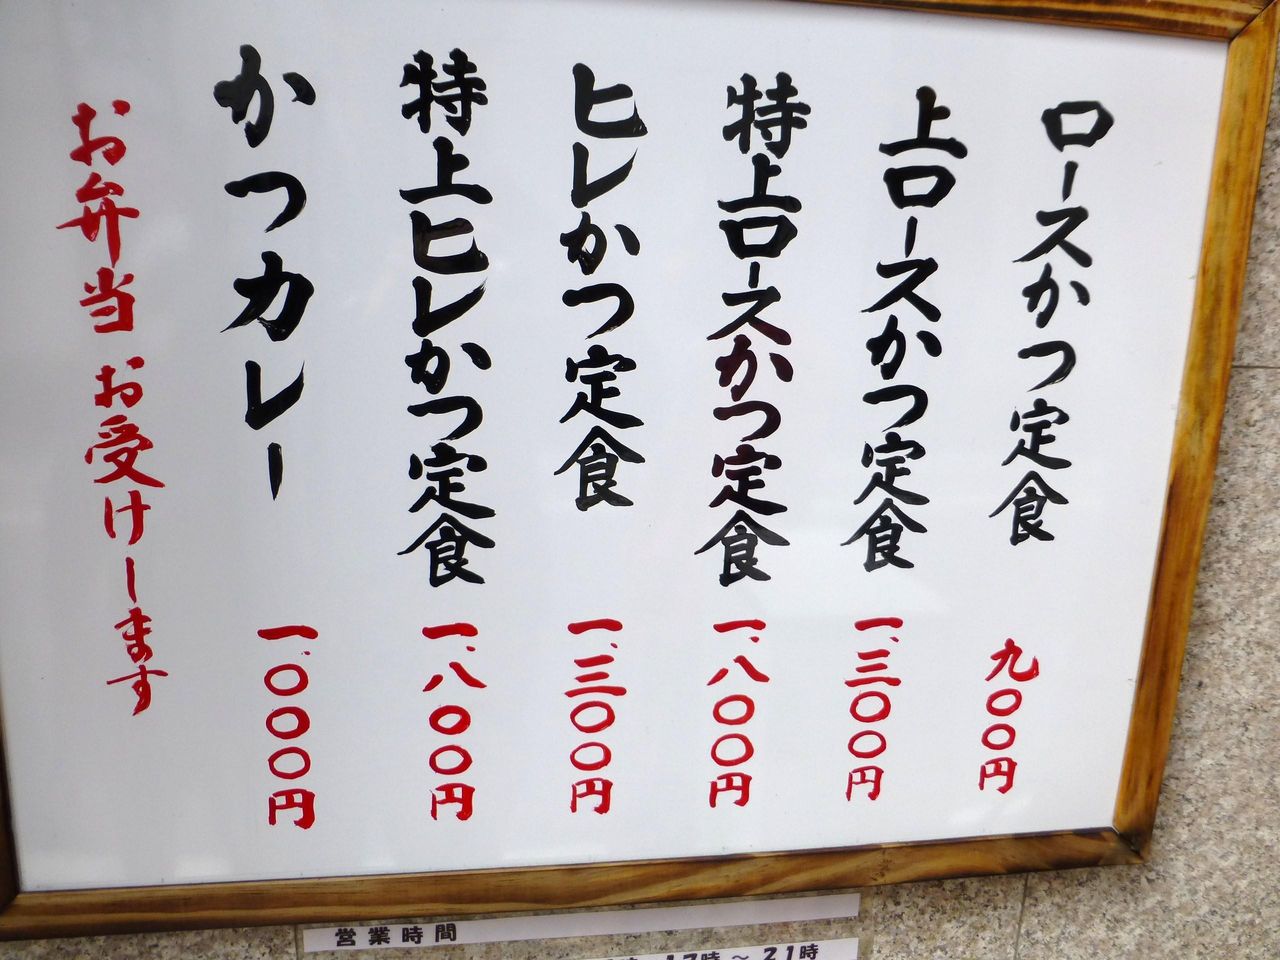 ロースかつ定食 九〇〇円
上ロースかつ定食 一、三〇〇円
特上ロースかつ定食 一、八〇〇円
ヒレかつ定食 一、三〇〇円
特上ヒレかつ定食 一、八〇〇円
かつカレー 一、〇〇〇円
お弁当 お受けします
営業時間
17時～21時